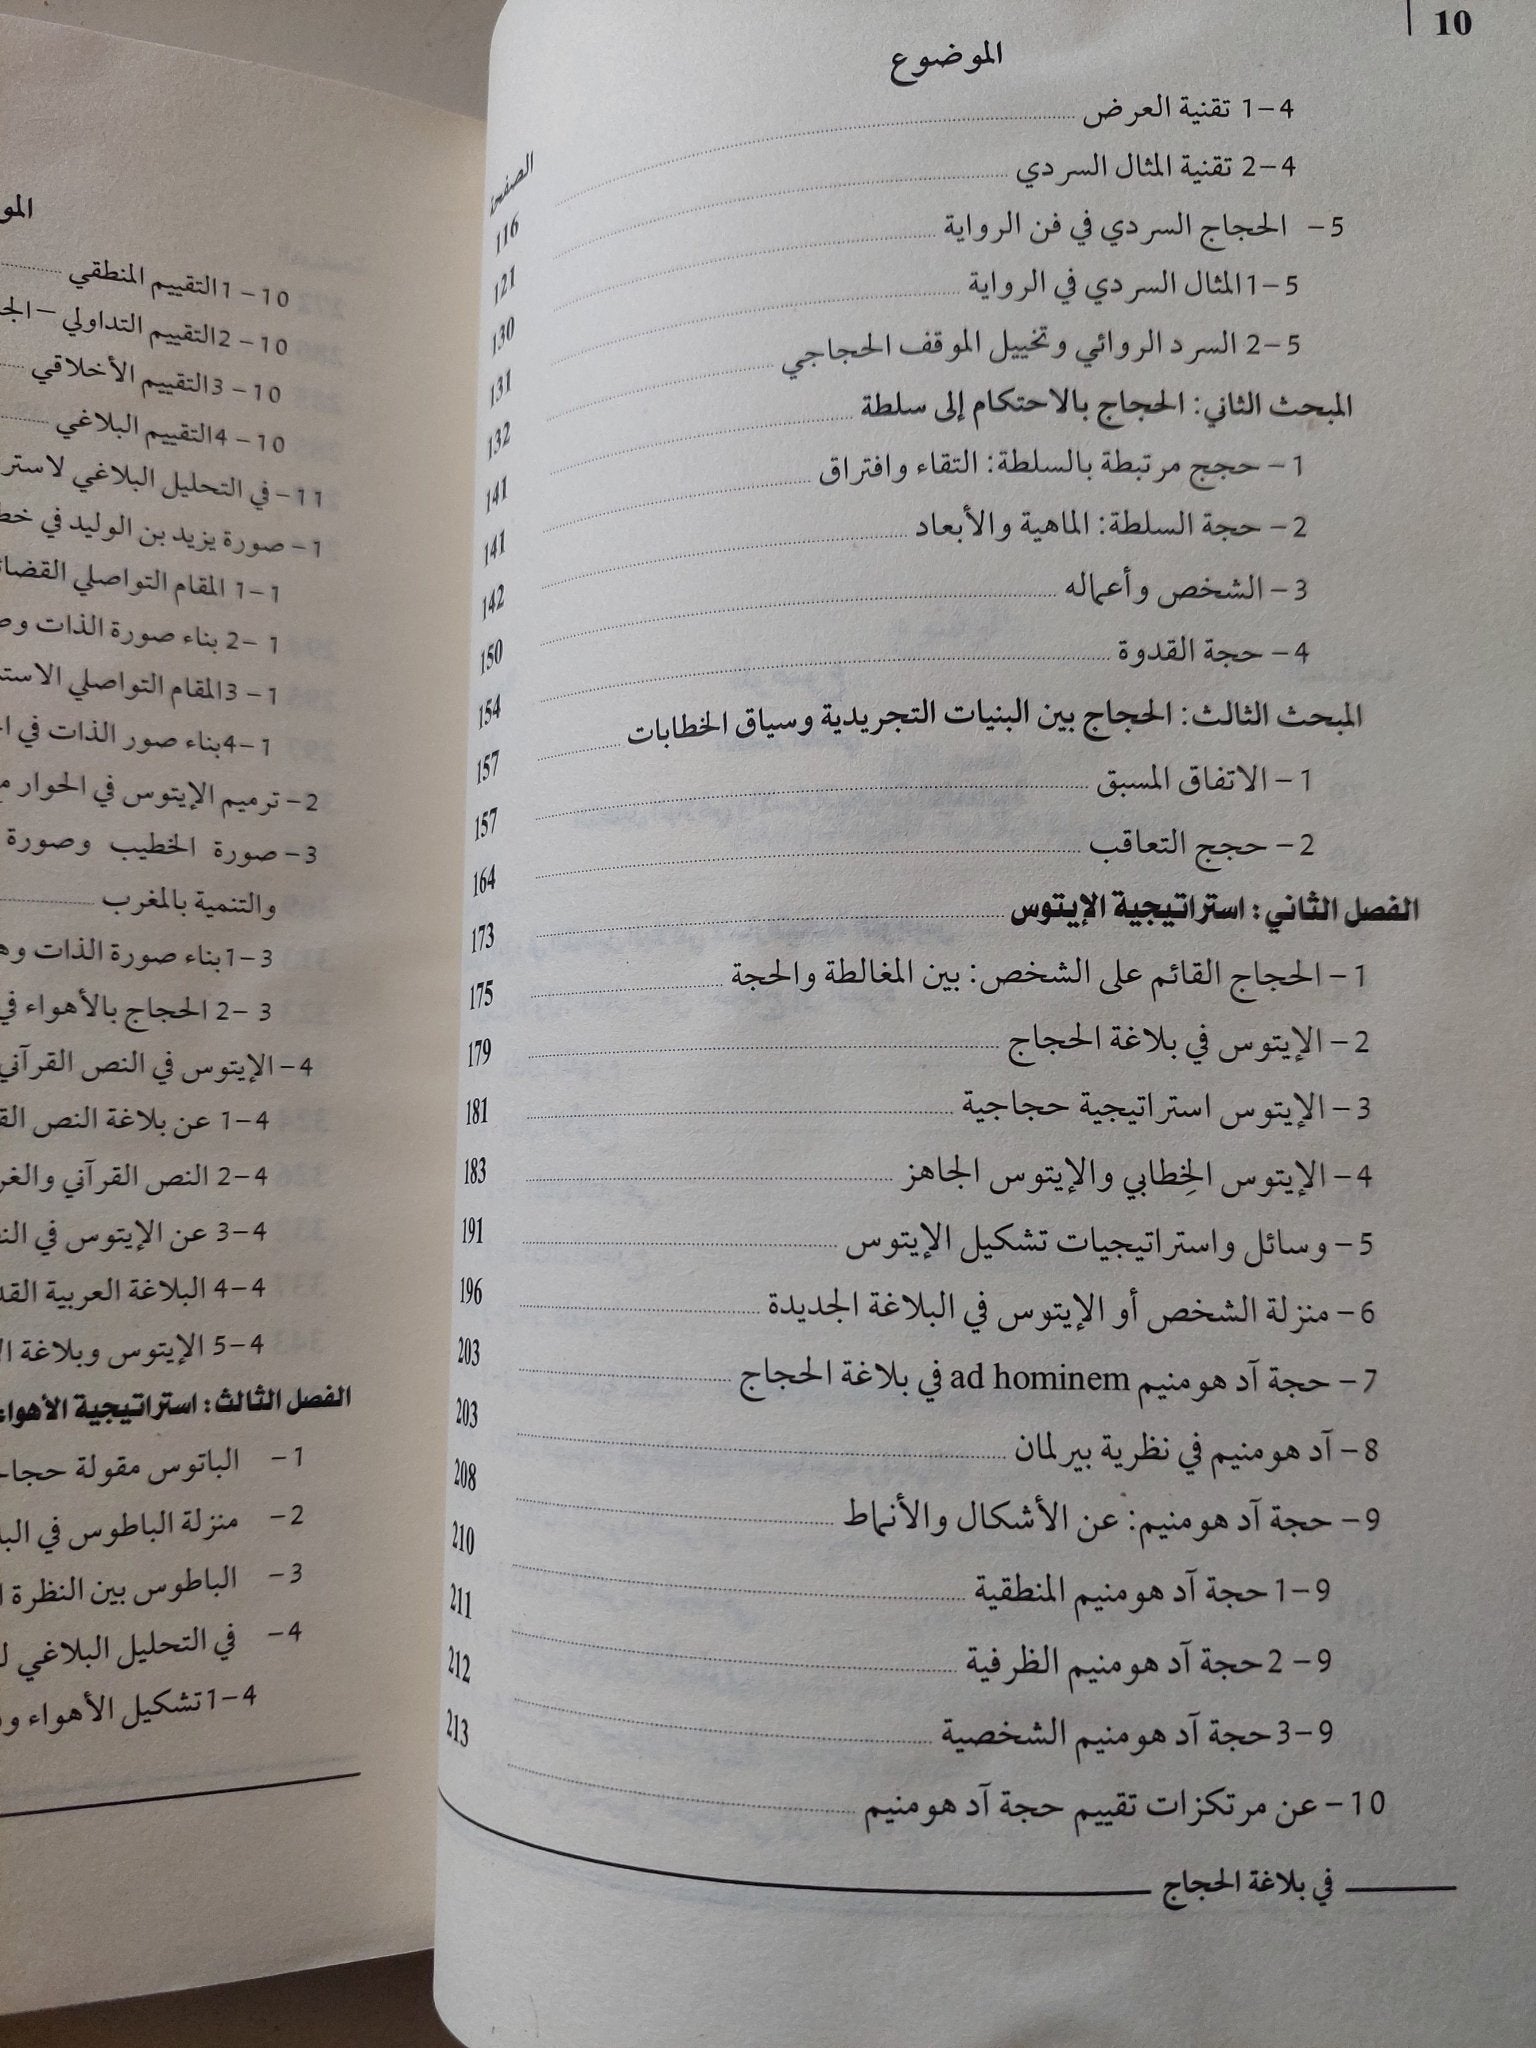 10
الموضوع الصفحة
4-1 تقنية العرض 116
4-2 تقنية المثال السردي 121
5- الحجاج السردي في فن الرواية 130
5-1 المثال السردي في الرواية 131
5-2 السرد الروائي وتخييل الموقف الحجاجي 132
المبحث الثاني: الحجاج بالاحتكام إلى سلطة 141
1- حجج مرتبطة بالسلطة: التقاء وافتراق 141
2- حجة السلطة: الماهية والأبعاد 142
3- الشخص وأعماله 150
4- حجة القدوة 154
المبحث الثالث: الحجاج بين البنيات التجريدية وسياق الخطابات 157
1- الاتفاق المسبق 157
2- حجج التعاقب 164
الفصل الثاني: استراتيجية الإيتوس 173
1- الحجاج القائم على الشخص: بين المغالطة والحجة 175
2- الإيتوس في بلاغة الحجاج 179
3- الإيتوس استراتيجية حجاجية 181
4- الإيتوس الخِطابي والإيتوس الجاهز 183
5- وسائل واستراتيجيات تشكيل الإيتوس 191
6- منزلة الشخص أو الإيتوس في البلاغة الجديدة 196
7- حجة آد هومنيم ad hominem في بلاغة الحجاج 203
8- آد هومنيم في نظرية بيرلمان 203
9- حجة آد هومنيم: عن الأشكال والأنماط 208
9-1 حجة آد هومنيم المنطقية 210
9-2 حجة آد هومنيم الظرفية 211
9-3 حجة آد هومنيم الشخصية 212
10- عن مرتكزات تقييم حجة آد هومنيم 213
في بلاغة الحجاج
10-1 التقييم المنطقي
10-2 التقييم التداولي –
10-3 التقييم الأخلاقي
10-4 التقييم البلاغي
11- في التحليل البلاغي
1- صورة يزيد بن الوليد في
1-1 المقام التواصلي
1-2 بناء صورة الذات
1-3 المقام التواصلي
1-4 بناء صور الذات في
2- ترميم الإيتوس في الحوار
3- صورة الخطيب وصورة
والتنمية بالمغرب
3-1 بناء صورة الذات
3-2 الحجاج بالأهواء في
4- الإيتوس في النص القرآني
4-1 عن بلاغة النص
4-2 النص القرآني
4-3 عن الإيتوس في
4-4 البلاغة العربية
4-5 الإيتوس وبلاغة
الفصل الثالث: استراتيجية الأهواء
1- الباتوس مقولة
2- منزلة الباطوس في
3- الباطوس بين النظرة
4- في التحليل البلاغي
4-1 تشكيل الأهواء